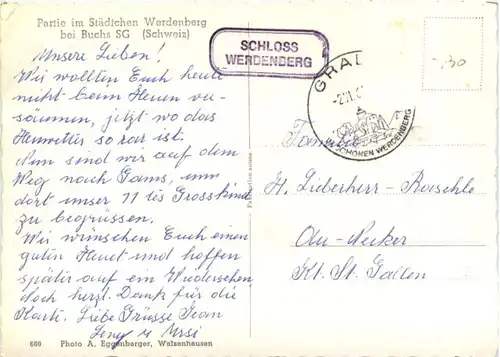 Partie im Städtchen Werdenberg
bei Buchs SG (Schweiz)
SCHLOSS
WERDENBERG
-.30
Unsere Lieben!
Wir wollten Euch heute
nicht beim Heuen ver-
säumen, jetzt wo das
Heuwetter so rar ist.
Nun sind wir auf dem
Weg nach Gams, um
dort unser 11 tes Grosskind
zu begrüssen.
Wir wünschen Euch einen
guten Heuet und hoffen
später auf ein Wiedersehen
doch herzl. Dank für die
Karte. Liebe Grüsse
GRA
IM SCHÖNEN WERDENBERG
Familie
H. Lieberherr-Raschle
Au-Necker
Kt. St. Gallen
689 Photo A. Eggenberger, Walzenhausen